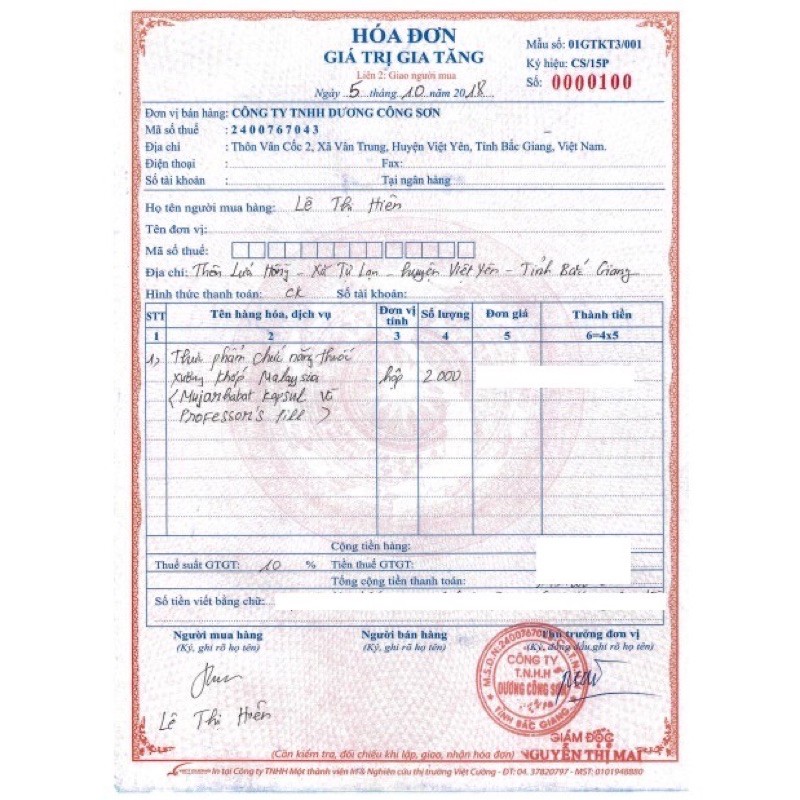 HÓA ĐƠN
GIÁ TRỊ GIA TĂNG
Liên 2: Giao người mua
Ngày 5 tháng 10 năm 2018
Mẫu số: 01GTKT3/001
Ký hiệu: CS/15P
Số: 0000100
Đơn vị bán hàng: CÔNG TY TNHH DƯƠNG CÔNG SƠN
Mã số thuế : 2400767043
Địa chỉ : Thôn Văn Cốc 2, Xã Vân Trung, Huyện Việt Yên, Tỉnh Bắc Giang, Việt Nam.
Điện thoại : Fax:
Số tài khoản : Tại ngân hàng
Họ tên người mua hàng: Lê Thị Hiền
Tên đơn vị:
Mã số thuế:
Địa chỉ: Thôn Hồng - Xã Tự Lạn - huyện Việt Yên - Tỉnh Bắc Giang
Hình thức thanh toán: CK Số tài khoản:
STT Tên hàng hóa, dịch vụ Đơn vị tính Số lượng Đơn giá Thành tiền
1 2 3 4 5 6=4x5
1) Thực phẩm chức năng thuốc
xương khớp Malaysia hộp 2.000
(Mujarhabat Kapsul và
Professor's Pill)
Cộng tiền hàng:
Thuế suất GTGT: 10 % Tiền thuế GTGT:
Tổng cộng tiền thanh toán:
Số tiền viết bằng chữ:
Người mua hàng Người bán hàng Thủ trưởng đơn vị
(Ký, ghi rõ họ tên) (Ký, ghi rõ họ tên) (Ký, đóng dấu, ghi rõ họ tên)
M.S.D.N:2400767043
CÔNG TY
T.N.H.H
DƯƠNG CÔNG SƠN
TỈNH BẮC GIANG
Lê Thị Hiền
GIÁM ĐỐC
NGUYỄN THỊ MAI
(Cần kiểm tra, đối chiếu khi lập, giao, nhận hóa đơn)
In tại Công ty TNHH Một thành viên In & Nghiên cứu thị trường Việt Cường - ĐT: 04. 37820797 - MST: 0101948880